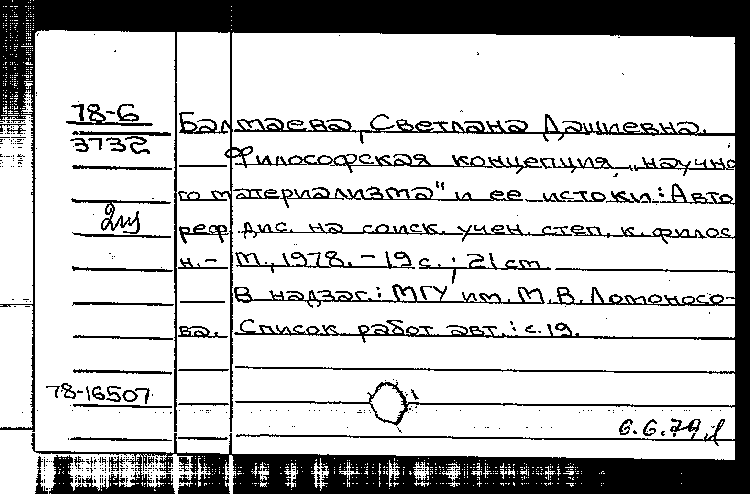 78-6
3732
Балтаева, Светлана Дашиевна.
Философская концепция „научно
го материализма" и ее истоки: Авто
реф. дис. на соиск. учен. степ. к. филос
н. - М., 1978. - 19 с.; 21 см
В надзаг.: МГУ им. М. В. Ломоносо-
ва. Список работ авт.: с. 19.
78-16507
6.6.79